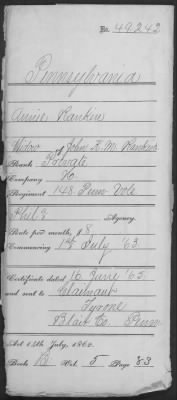 No. 49242
Pennsylvania
Annie Rankin
Widow of John H. M. Rankin
Rank Private
Company H
Regiment 148 Penn Vols
Phil'a Agency.
Rate per month, $ 8
Commencing 1st July '63
Certificate dated 16 June '65
and sent to Claimant
Tyrone
Blair Co Penn
Act 14th July, 1862.
Book B Vol. 5 Page 83